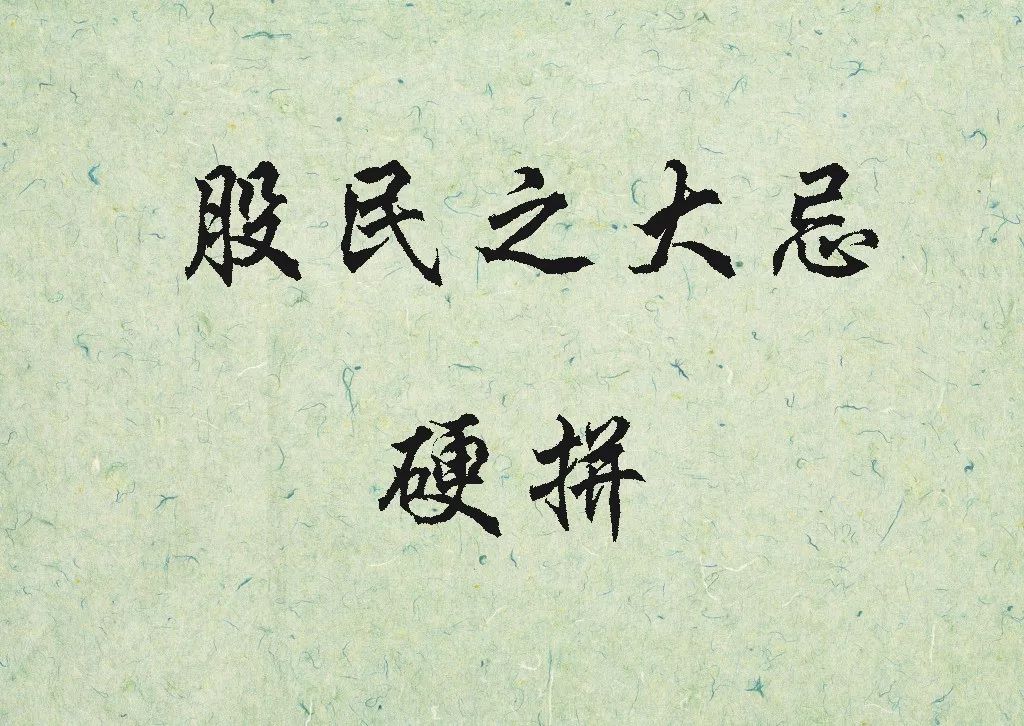 股民之大忌
硬拼